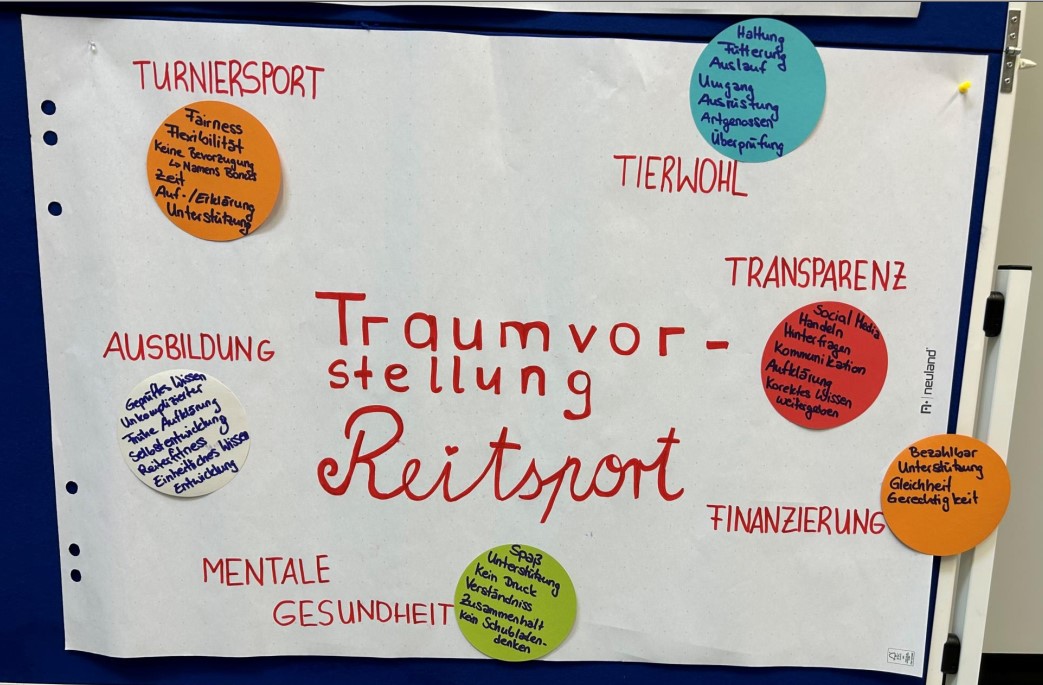 TURNIERSPORT
Fairness
Flexibilität
Keine Bevorzugung
↳ Namens Bonus
Zeit
Auf-/Erklärung
Unterstützung
Haltung
Fütterung
Auslauf
Umgang
Ausrüstung
Artgenossen
Überprüfung
TIERWOHL
TRANSPARENZ
Social Media
Handeln
Hinterfragen
Kommunikation
Aufklärung
Korektes Wissen
weitergeben
AUSBILDUNG
Geprüftes Wissen
Unkomplizierter
Frühe Aufklärung
Selbstentwicklung
Reiterfitness
Einheitliches Wissen
Entwicklung
Traumvor-
stellung
Reitsport
neuland
Bezahlbar
Unterstützung
Gleichheit
Gerechtigkeit
FINANZIERUNG
MENTALE
GESUNDHEIT
Spaß
Unterstützung
Kein Druck
Verständniss
Zusammenhalt
Kein Schubladen-
denken